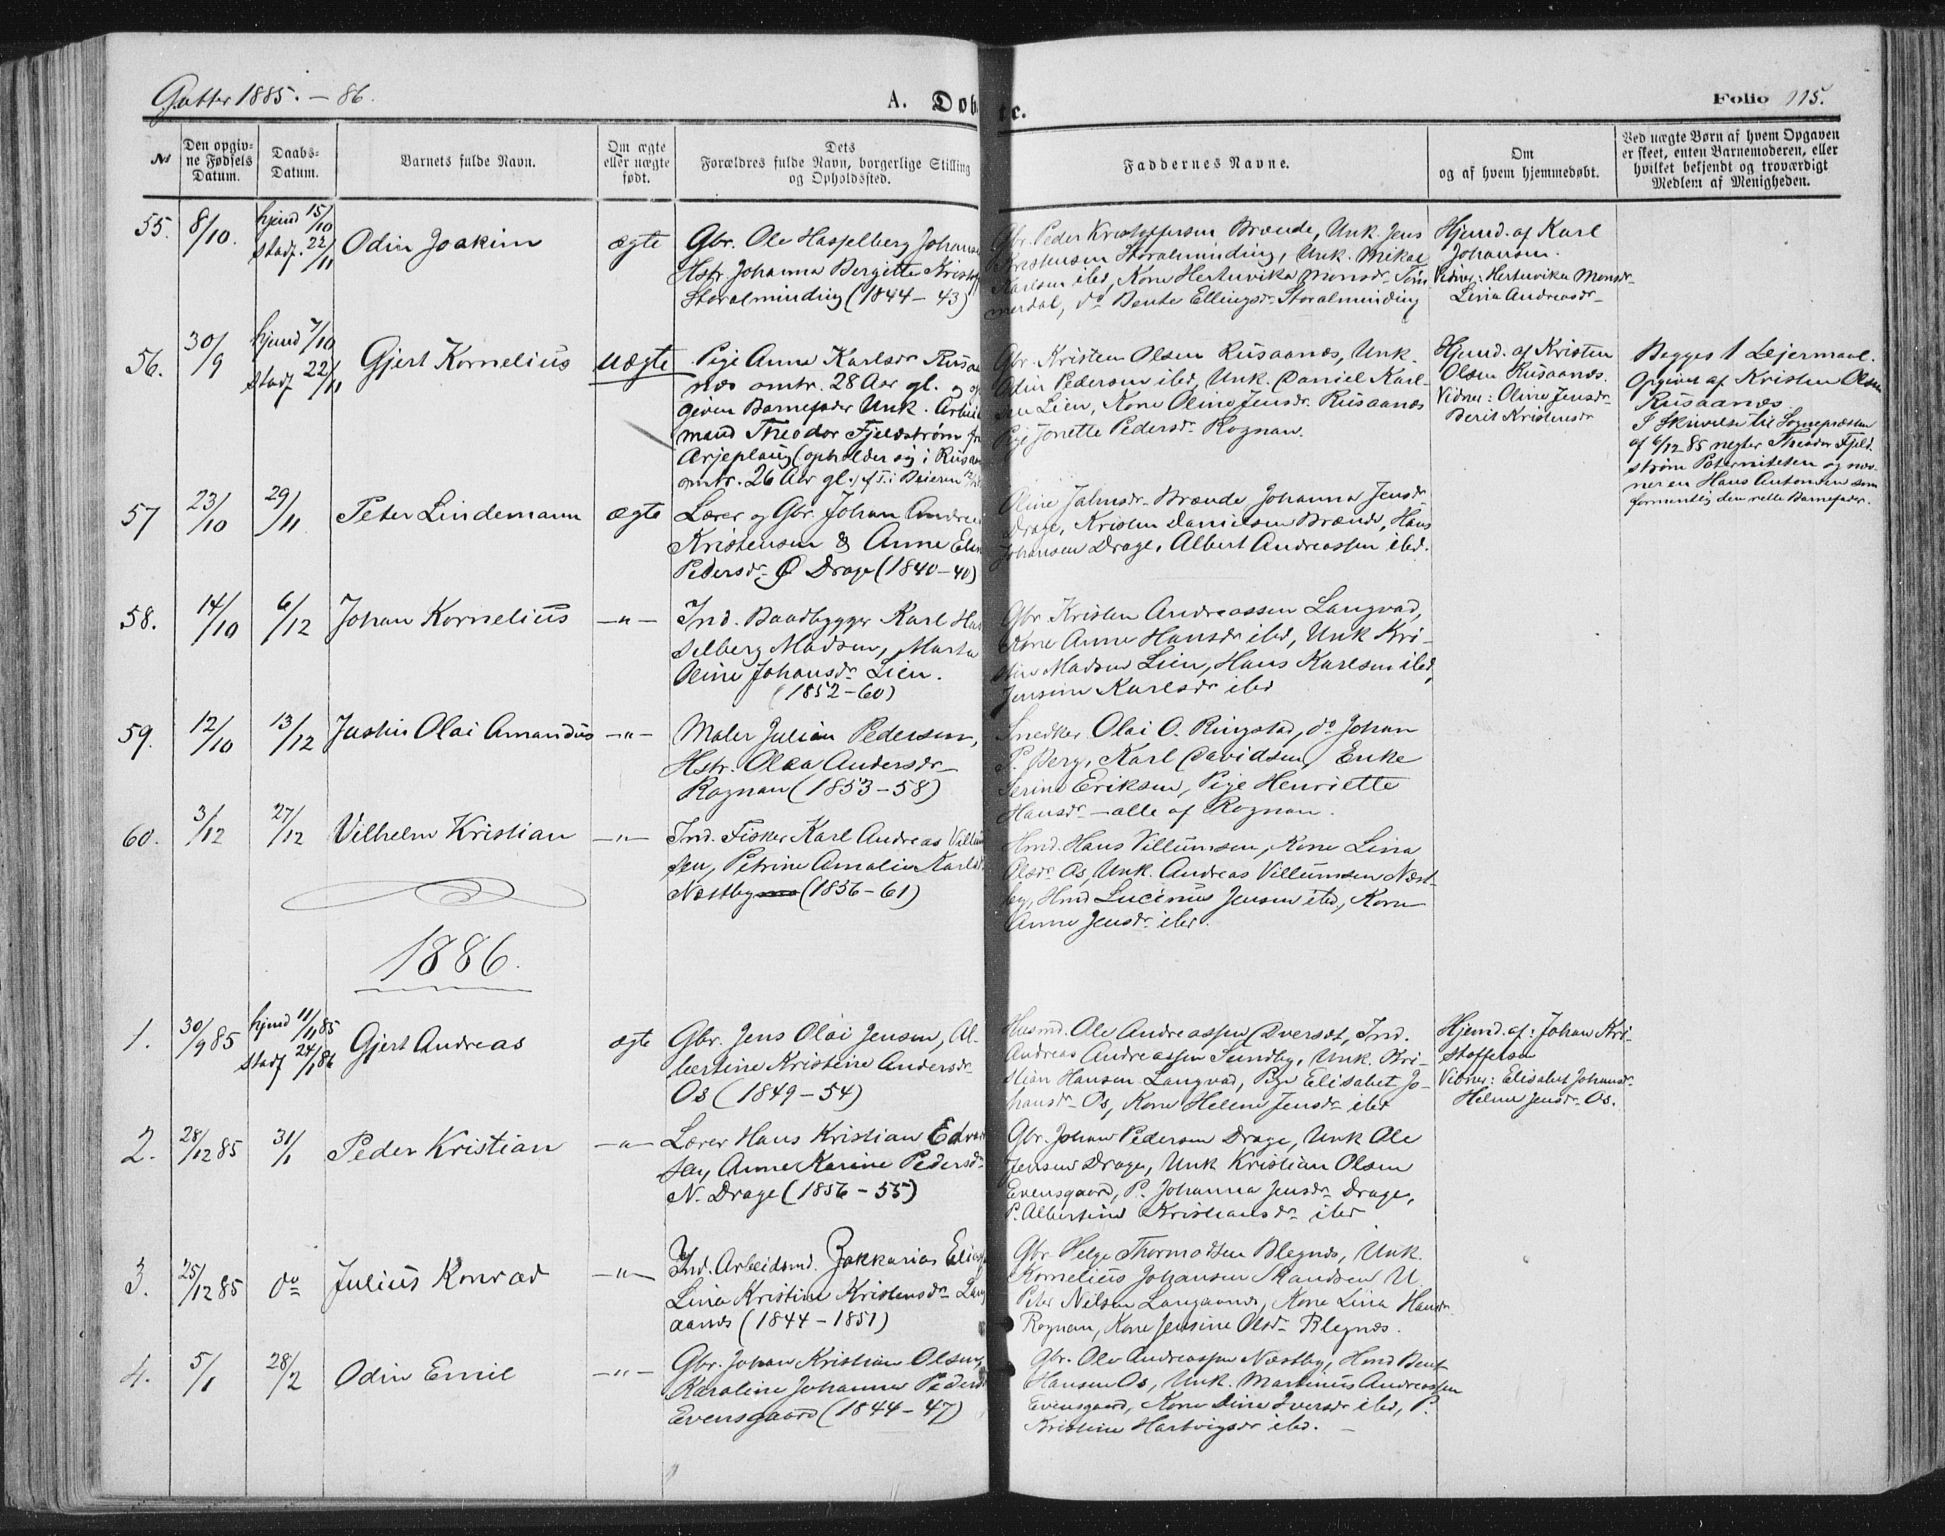 Gutter 1885. - 86.
A. Døb
te.
Folio 115.
No
Den opgiv-
ne Fødsels
Datum.
Daabs-
Datum.
Barnets fulde Navn.
Om ægte
eller uægte
født.
Dets
Forældres fulde Navn, borgerlige Stilling
og Opholdssted.
Faddernes Navne.
Om
og af hvem hjemmedøbt.
Ved uægte Børn af hvem Opgaven
er skeet, enten Barnemoderen, eller
hvilket bekjendt og troværdigt
Medlem af Menigheden.
55.
8/10.
hjmd 15/10
stadf. 22/11
Odin Joakim
ægte
Gbr. Ole Hasselberg Johanse
Hstr. Johanna Bergitte Kristoff
Storalminding (1844 - 43)
Gbr. Peder Kristoffersen Brænde, Unk. Jens
Kristensen Storalminding, Unk. Mikal
Karlsen ibd, Kone Hertuvika Monsdr. Tøm
merdal, do Bente Ellingsdr. Storalminding
Hjemd. af Karl
Johansen.
Vidner: Hertuvika Monsdr.
Lina Andreasdr.
56.
30/9
hjmd 7/10
stadf 22/11
Gjert Kornelius
uægte
Pige Anne Karlsdr Rusaa
næs omtr. 28 Aar gl. og op
given Barnefader Unk. Arbeid
mand Theodor Fjeldstrøm fra
Arjeplaug (opholder sig i Rusaa
omtr. 26 Aar gl.
Gbr. Kristen Olsen Rusaanæs, Unk.
Odin Pedersen ibd, Unk. Daniel Karl-
sen Lien, Kone Oline Jensdr. Rusaanæs
Pige Jonette Pedersdr. Rognan.
Hjemd. af Kristen
Olsen Rusaanæs.
Vidner: Oline Jensdr.
Berit Kristensdr
Begges 1 Lejermaal.
Opgivet af Kristen Olsen
Rusaanæs
I Skrivelse til Sognepræsten
af 6/12 85 negter Theodor Fjeld
strøm Paterniteten og næv-
ner en Hans Antonsen som
formentlig den rette Barnefader.
57
23/10
29/11
Peter Lindemann
ægte
Lærer og Gbr. Johan Andrea
Kristensen & Anne Elen
Pedersdr. Ø Drage (1840 - 40)
Oline Jakobsdr. Brænde Johanna Jensdr
Drage, Kristen Danielsen Brænde, Hans
Johansen Drage, Albert Andreassen ibd.
58.
14/10
6/12
Johan Kornelius
-"-
Ind. Baadbygger Karl Has
selberg Madsen, Marta
Oline Johansdr. Lien.
(1852 - 60)
Gbr Kristen Andreassen Langvad,
Kone Anne Hansdr ibd, Unk Kri-
stian Madsen Lien, Hans Karlsen ibd,
Jensine Karlsdr ibd
59.
12/10
13/12
Justin Olai Amandus
-"-
Maler Julian Pedersen,
Hstr. Olea Andersdr.
Rognan (1853 - 58)
Snedker Olai O. Ringstad, do Johan
P. Berg, Karl Davidsen, Enke
Serine Eriksen, Pige Henriette
Hansdr - alle af Rognan.
60.
3/12
27/12
Vilhelm Kristian
-"-
Ind. Fisker Karl Andreas Villum
sen, Petrine Amalie Karlsd
Næstby (1856 - 61)
Hmd. Hans Villumsen, Kone Lina
Olsdr Os, Unk. Andreas Villumsen Næst-
by, Hmd Lucinus Jensen ibd, Kone
Anne Jensdr ibd.
1886.
1.
30/9 85
hjmd 11/11 85
stadf 24/1 86
Gjert Andreas
ægte
Gbr. Jens Olai Jensen, Al-
bertine Kristine Andersdr.
Os (1849 - 54)
Husmd. Ole Andreassen Dverset, Ind.
Andreas Andreassen Sundby, Unk. Kri-
stian Hansen Langvad, Pige Elisabet Jo-
hansdr Os, Kone Helene Jensdr ibd
Hjemd. af: Johan Kri-
stoffersen
Vidner: Elisabet Johansdr.
Helene Jensdr. Os.
2.
28/12 85
31/1
Peder Kristian
-"-
Lærer Hans Kristian Edvar
sen, Anne Karine Pedersdr
N. Drage (1856 - 55)
Gbr. Johan Pedersen Drage, Unk Ole
Jensen Drage, Unk Kristian Olsen
Evensgaard, P. Johanna Jensdr Drage,
P. Albertine Kristiansdr ibd
3.
25/12 85
do
Julius Konrad
-"-
Ind. Arbeidsmd. Zakkarias Elias
Lina Kristine Kristensdr Lang
aanæs (1844 - 1851)
Gbr Helge Thormodsen Blegnæs, Unk.
Kornelius Johansen Randsen U.
Peter Nilsen Langaanæs, Kone Lina Hansdr
Rognan, Kone Jensine Olsdr Blegnæs.
4.
5/1
28/2
Odin Emil
-"-
Gbr. Johan Kristian Olsen,
Karoline Johanna Pedersd
Evensgaard (1844 - 47)
Gbr. Ole Andreassen Næstby, Hmd Bent
Hansen Os, Unk. Martinus Andreassen
Evensgaard, Kone Dine Iversdr ibd, P.
Kristine Hartvigsdr ibd.